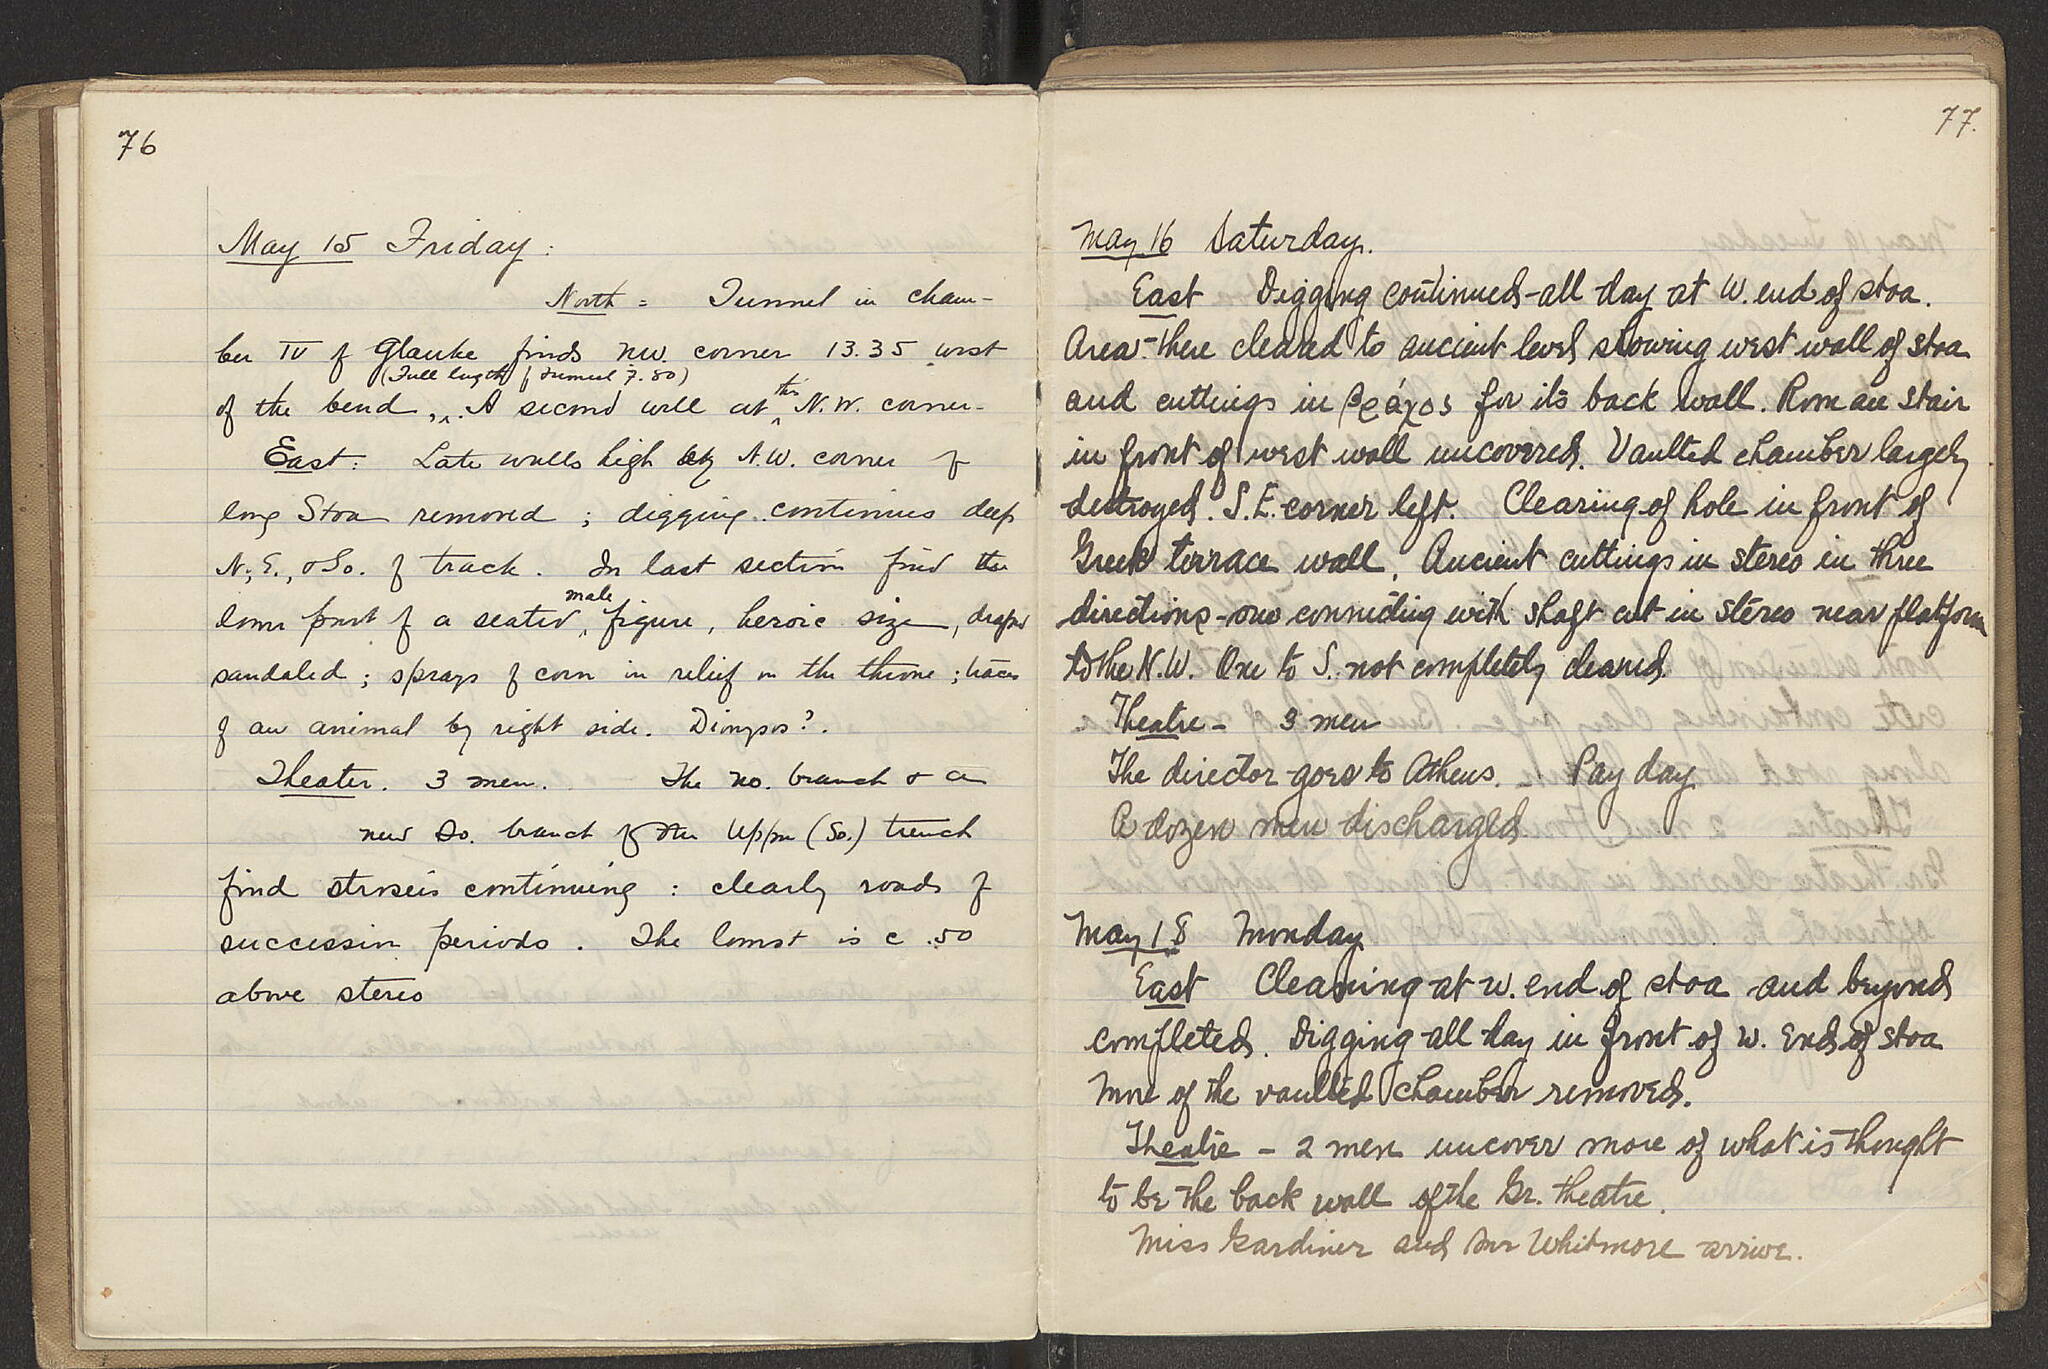 76
May 15 Friday:
North = Tunnel in cham-
ber IV of Glauke finds nw. corner 13.35 west
(Full length of tunnel 7.80)
of the bend, . A second well at this N.W. corner-
East: Late walls high by N.W. corner of
long Stoa removed ; digging continues deep
N., E., & So. of track. In last section find the
lower part of a seated male figure, heroic size, draped
sandaled ; sprays of corn in relief on the throne ; traces
of an animal by right side. Dionysos?.
Theater. 3 men. The no. branch & a
new So. branch of the Upper (So.) trench
find stroseis continuing : clearly roads of
successive periods. The lowest is c .50
above stereo
77.
May 16 Saturday.
East Digging continued all day at W. end of stoa.
Area there cleared to ancient level showing west wall of stoa
and cuttings in βράχος for its back wall. Roman stair
in front of west wall uncovered. Vaulted chamber largely
destroyed. S.E. corner left. Clearing of hole in front of
Greek terrace wall. Ancient cuttings in stereo in three
directions - one connecting with shaft cut in stereo near platform
to the N.W. One to S. not completely cleared.
Theatre - 3 men
The director goes to Athens. - Pay day
A dozen men discharged
May 18 Monday
East Cleaning at w. end of stoa and beyond
completed. Digging all day in front of W. End of stoa
More of the vaulted chamber removed.
Theatre - 2 men uncover more of what is thought
to be the back wall of the Gr. theatre.
Miss Gardiner and Mr Whitmore arrive.